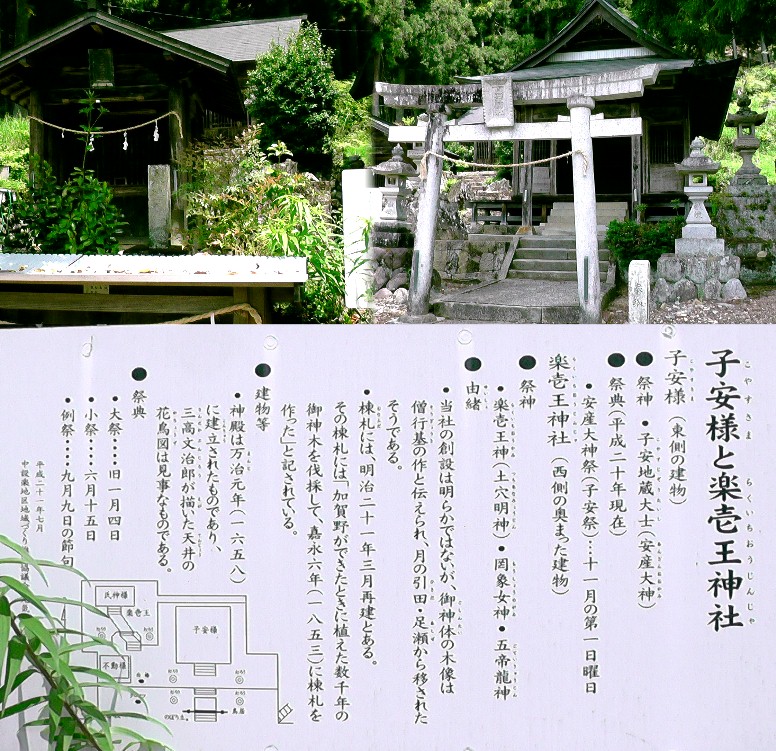 子安様と楽壱王神社
こやすさま
らくいちおうじんじゃ
子安様(東側の建物)
こやすさま
●祭神・子安地蔵大士(安産大神)
●祭典(平成二十年現在)
・安産大神祭(子安祭)…十一月の第一日曜日
楽壱王神社(西側の奥まった建物)
●祭神
・楽壱王神(土穴明神)・罔象女神・五帝龍神
●由緒
・当社の創設は明らかではないが、御神体の木像は
僧行基の作と伝えられ、月の引田・足瀬から移された
そうである。
・棟札には、明治二十一年三月再建とある。
その棟札には「加賀野ができたときに植えた数千年の
御神木を伐採して、嘉永六年(一八五三)に棟札を
作った」と記されている。
●建物等
・神殿は万治元年(一六五八)
に建立されたものであり、
三高文治郎が描いた天井の
花鳥図は見事なものである。
●祭典
・大祭‥‥旧一月四日
・小祭‥‥六月十五日
・例祭‥‥九月九日の節句
平成二十一年七月
中設楽地区地域づくり
協議
氏神様
楽壱王
子安様
不動様
鳥居
のぼり立